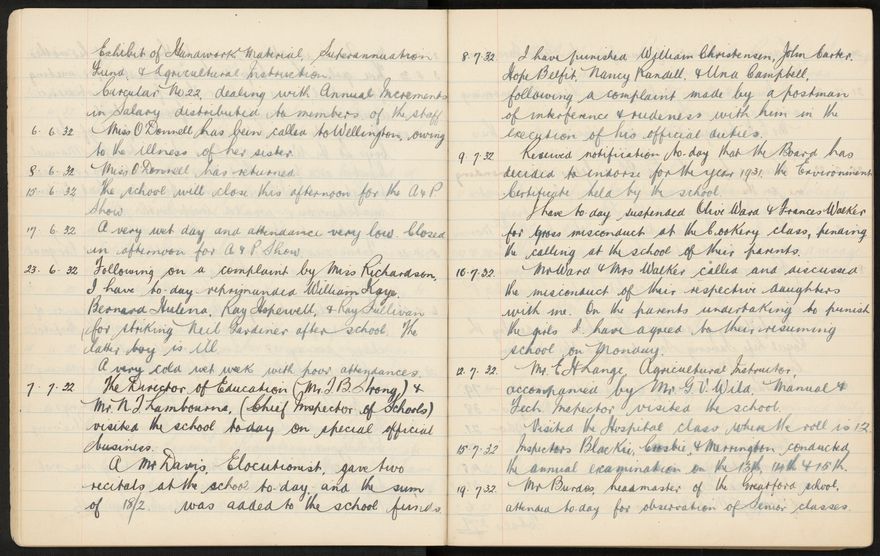 Exhibit of Handwork Material, Superannuation
Fund, & Agricultural Instruction.
Circular No 22 dealing with Annual Increments
in Salary distributed to members of the staff
6. 6. 32 Miss O'Donnell has been called to Wellington, owing
to the illness of her sister
8. 6. 32 Miss O'Donnell has returned.
15. 6. 32 The school will close this afternoon for the A & P
Show
17. 6. 32 A very wet day and attendance very low. Closed
in afternoon for A & P Show
23. 6. 32 Following on a complaint by Miss Richardson,
I have to-day reprimanded William Kay,
Bernard Hulena, Ray Hopewell, & Ray Sullivan
for striking Neil Gardener after school. The
latter boy is ill.
A very cold wet week with poor attendances.
7. 7. 22 The Director of Education (Mr. T B Strong) &
Mr. N T Lambourne, (Chief Inspector of Schools)
visited the school to-day on special official
business.
A Mr Davis, Elocutionist, gave two
recitals at the school to-day and the sum
of 18/2 was added to the school funds.
8. 7. 32 I have punished William Christensen, John Carter,
Hope Belfit, Nancy Kandell, & Una Campbell,
following a complaint made by a postman
of interference & rudeness with him in the
execution of his official duties.
9. 7. 32 Received notification to-day that the Board has
decided to indorse for the year 1931, the Environment
Certificate held by the school.
I have to day suspended Olive Ward & Frances Walker
for gross misconduct at the Cookery class, pending
the calling at the school of their parents.
10. 7. 32. Mr Ward & Mrs Walker called and discussed
the misconduct of their respective daughters
with me. On the parents undertaking to punish
the girls I have agreed to their resuming
school on Monday.
12. 7. 32. Mr. E H Lange, Agricultural Instructor,
accompanied by Mr. G. V. Wild, Manual &
Tech. Inspector visited the school.
Visited the Hospital class when the roll is 12
15. 7. 32 Inspectors Blackie, Crosbie, & Merrington conducted
the annual examination on the 13th, 14th & 15th.
19. 7. 32. Mr Burdes, headmaster of the Greatford school,
attended to-day for observation of Senior classes.